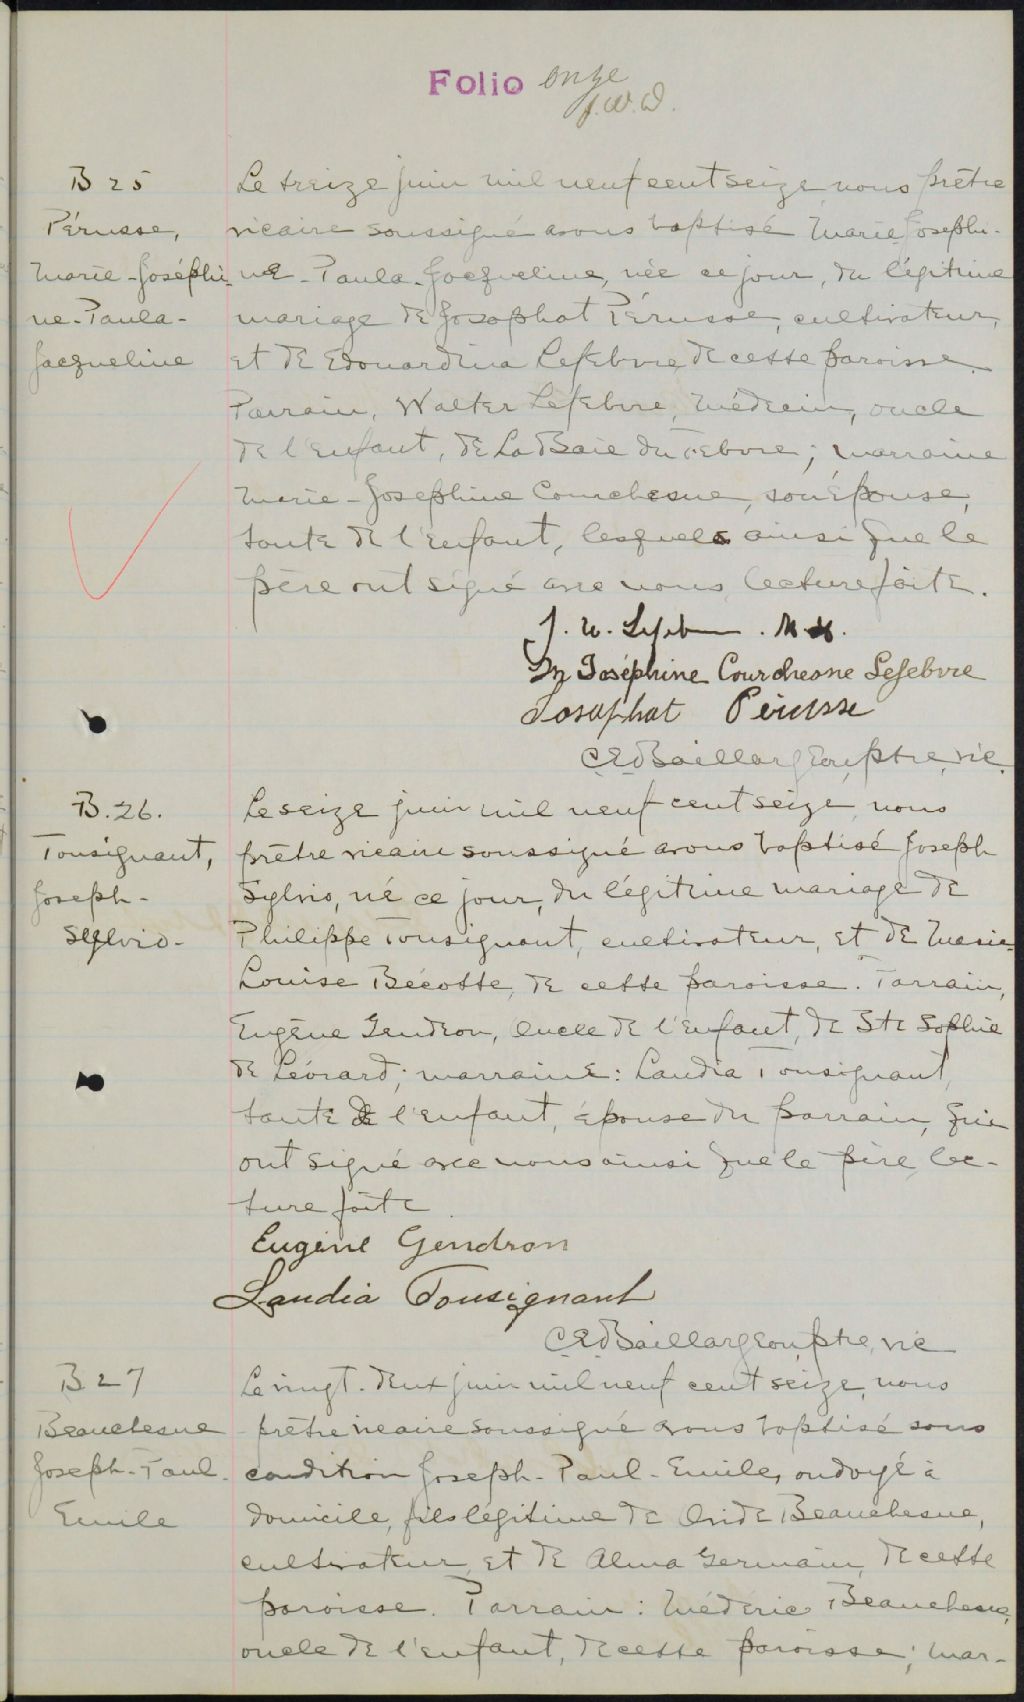 Folio onze
J.W.D.
B 25
Pérusse,
Marie-Joséphi-
ne-Paula-
Jacqueline
Le treize juin mil neuf cent seize, nous prêtre
vicaire soussigné avons baptisé Marie-Josephi-
ne-Paula-Jacqueline, née ce jour, du légitime
mariage de Josaphat Pérusse, cultivateur,
et de Edouardina Lefebvre de cette paroisse.
Parrain, Walter Lefebvre, Médecin, oncle
de l'enfant, de La Baie du Febvre; marraine
Marie-Josephine Courchesne, son épouse,
tante de l'enfant, lesquels ainsi que le
père ont signé avec nous, lecture faite.
J. W. Lefebvre M.D.
M Joséphine Courchesne Lefebvre
Josaphat Pérusse
C.E. Baillargeon, ptre, vic.
B. 26.
Tousignant,
Joseph-
Sylvio-
Le seize juin mil neuf cent seize, nous
prêtre vicaire soussigné avons baptisé Joseph
Sylvio, né ce jour, du légitime mariage de
Philippe Tousignant, cultivateur, et de Marie-
Louise Bécotte, de cette paroisse. Parrain,
Eugène Gendron, oncle de l'enfant, de Ste Sophie
de Lévrard; marraine: Laudia Tousignant,
tante de l'enfant, épouse du parrain, qui
ont signé avec nous ainsi que le père, lec-
ture faite.
Eugène Gendron
Laudia Tousignant
C.E. Baillargeon, ptre, vic
B 27
Beauchesne
Joseph-Paul-
Emile
Le vingt-deux juin mil neuf cent seize, nous
prêtre vicaire soussigné avons baptisé sous
condition Joseph-Paul-Emile, ondoyé à
domicile, fils légitime de Ovide Beauchesne,
cultivateur, et de Alma Germain, de cette
paroisse. Parrain: Médéric Beauchesne,
oncle de l'enfant, de cette paroisse; mar-